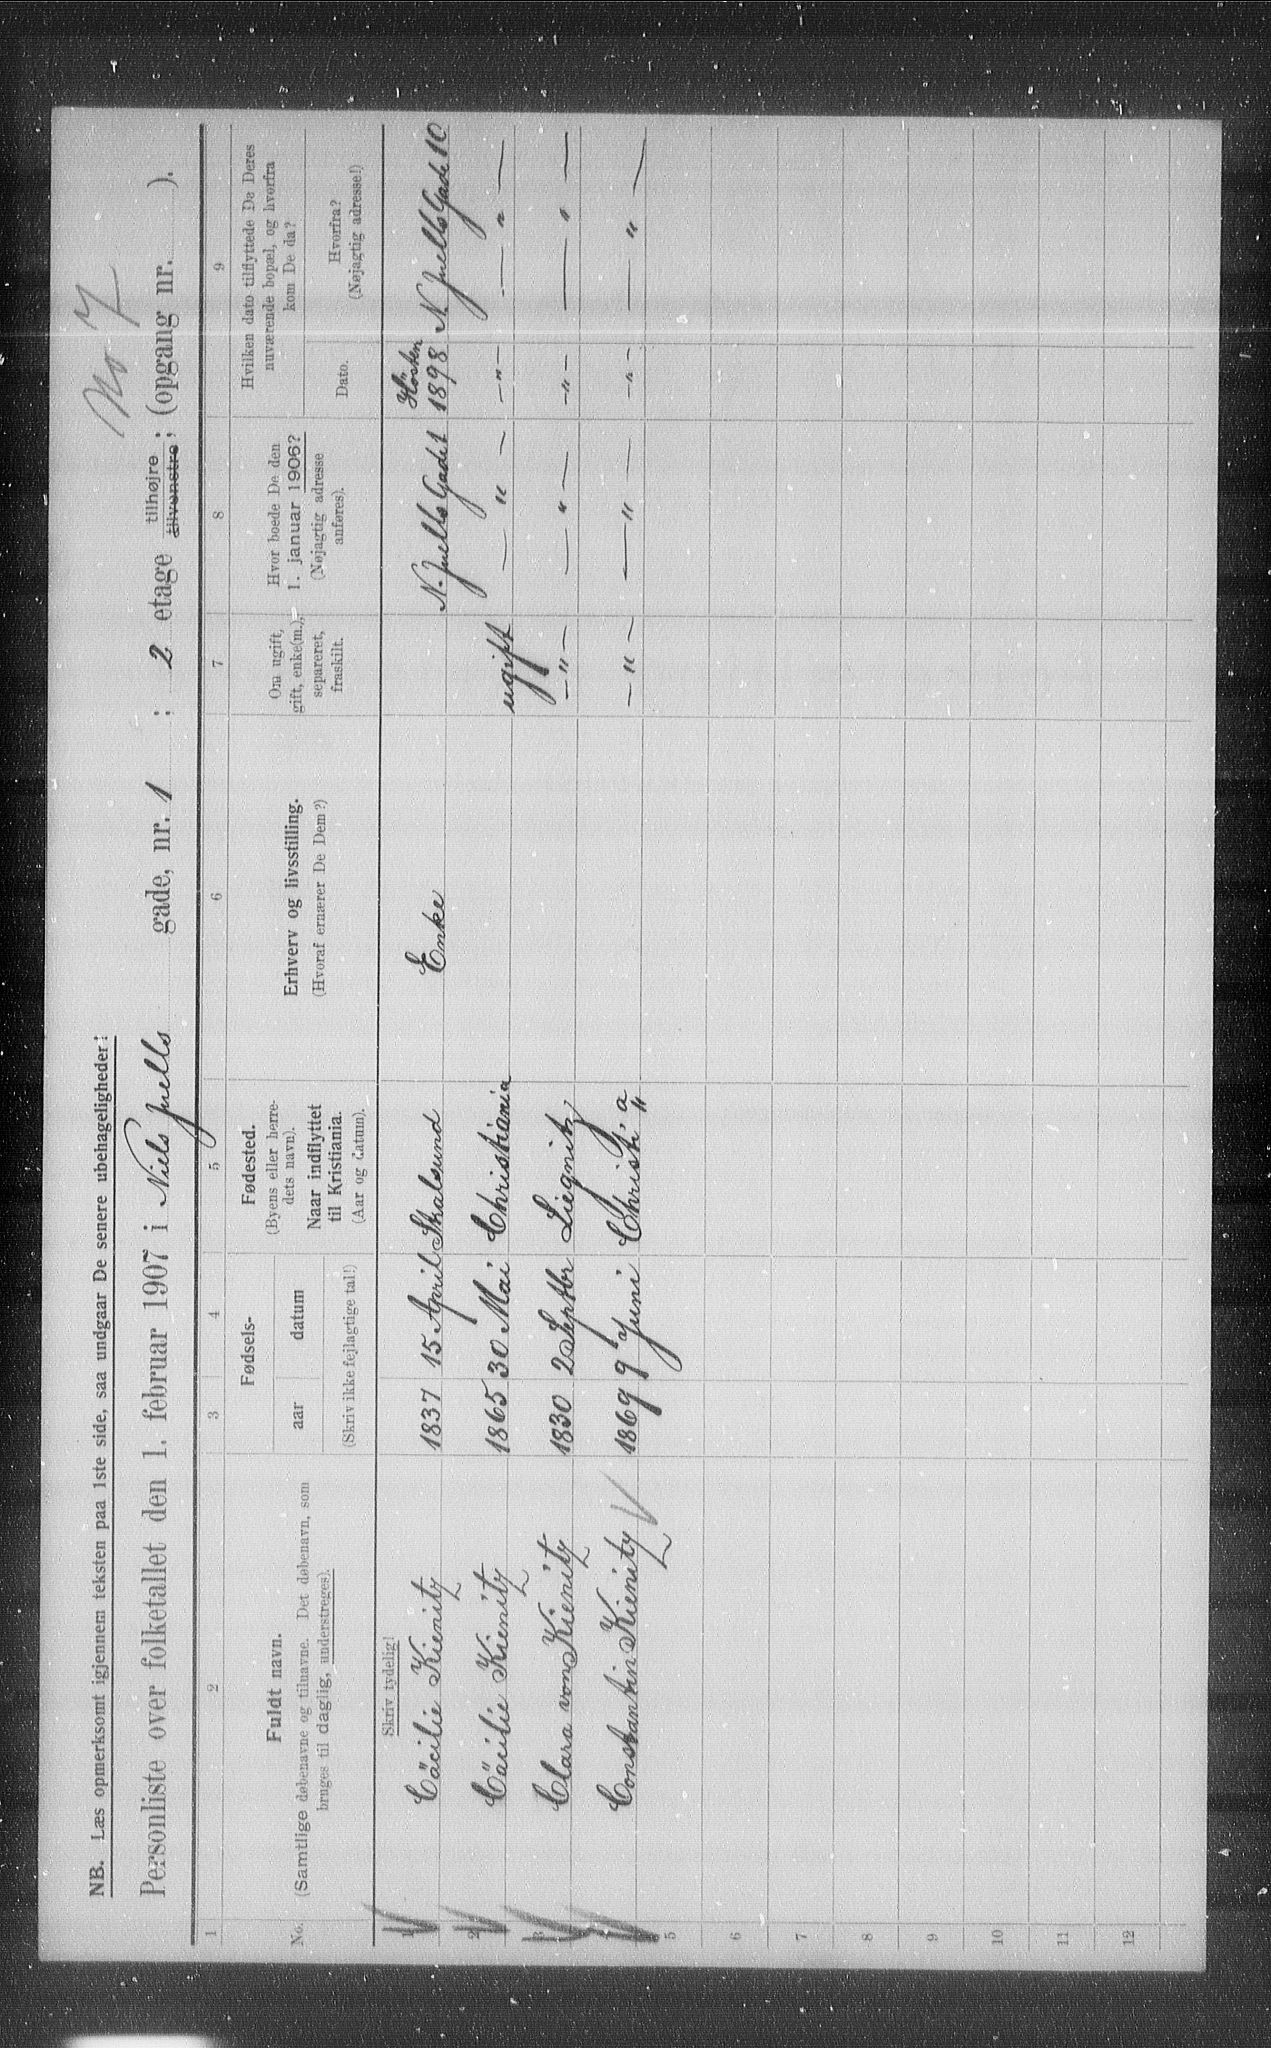 No 7
NB. Læs opmerksomt igjennem teksten paa 1ste side, saa undgaar De senere ubehageligheder!
Personliste over folketallet den 1. februar 1907 i Niels Juells gade, nr. 1; 2 etage tilhøjre tilvenstre; (opgang nr. ).
1 2 3 4 5 6 7 8 9
No. Fuldt navn. (Samtlige døbenavne og tilnavne. Det døbenavn, som bruges til daglig, understreges).
Fødsels- aar datum (Skriv ikke fejlagtige tal!)
Fødested. (Byens eller herredets navn). Naar indflyttet til Kristiania. (Aar og datum).
Erhverv og livsstilling. (Hvoraf ernærer De Dem?)
Om ugift, gift, enke(m.), separeret, fraskilt.
Hvor boede De den 1. januar 1906? (Nøjagtig adresse anføres).
Hvilken dato tilflyttede De Deres nuværende bopæl, og hvorfra kom De da?
Dato. Hvorfra? (Nøjagtig adresse!)
Skriv tydelig!
1 Cäcilie Kienitz 1837 15 April Stralsund Enke N. Juells Gade 1 Høsten 1898 N. Juells Gade 10
2 Cäcilie Kienitz 1865 30 Mai Christiania ugift — " — — " — — " —
3 Clara von Kienitz 1830 2 Septbr Liegnitz — " — — " — — " — — " —
4 Constantin Kienitz 1869 9 Juni Christi a — " — — " — — " — — " —
5
6
7
8
9
10
11
12